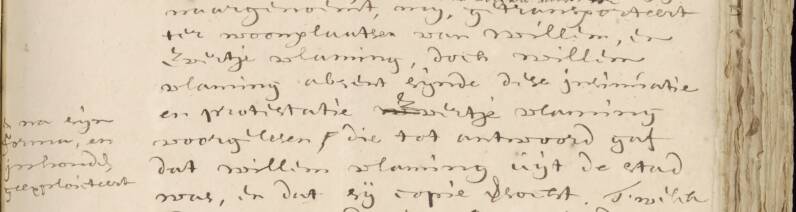 naargenoemt, my, getransporteert
ter woonplaatsen van willem, en
Evertje vlaming, doch willem
vlaming absent zijnde dese insinuatie
en protestatie Evertje vlaming
voorgelesen / die tot antwoord gaf
dat willem vlaming uyt de stad
was, en dat sy copie versocht. T'welk
na zijn
forma, en
inhoude
geexploiteert